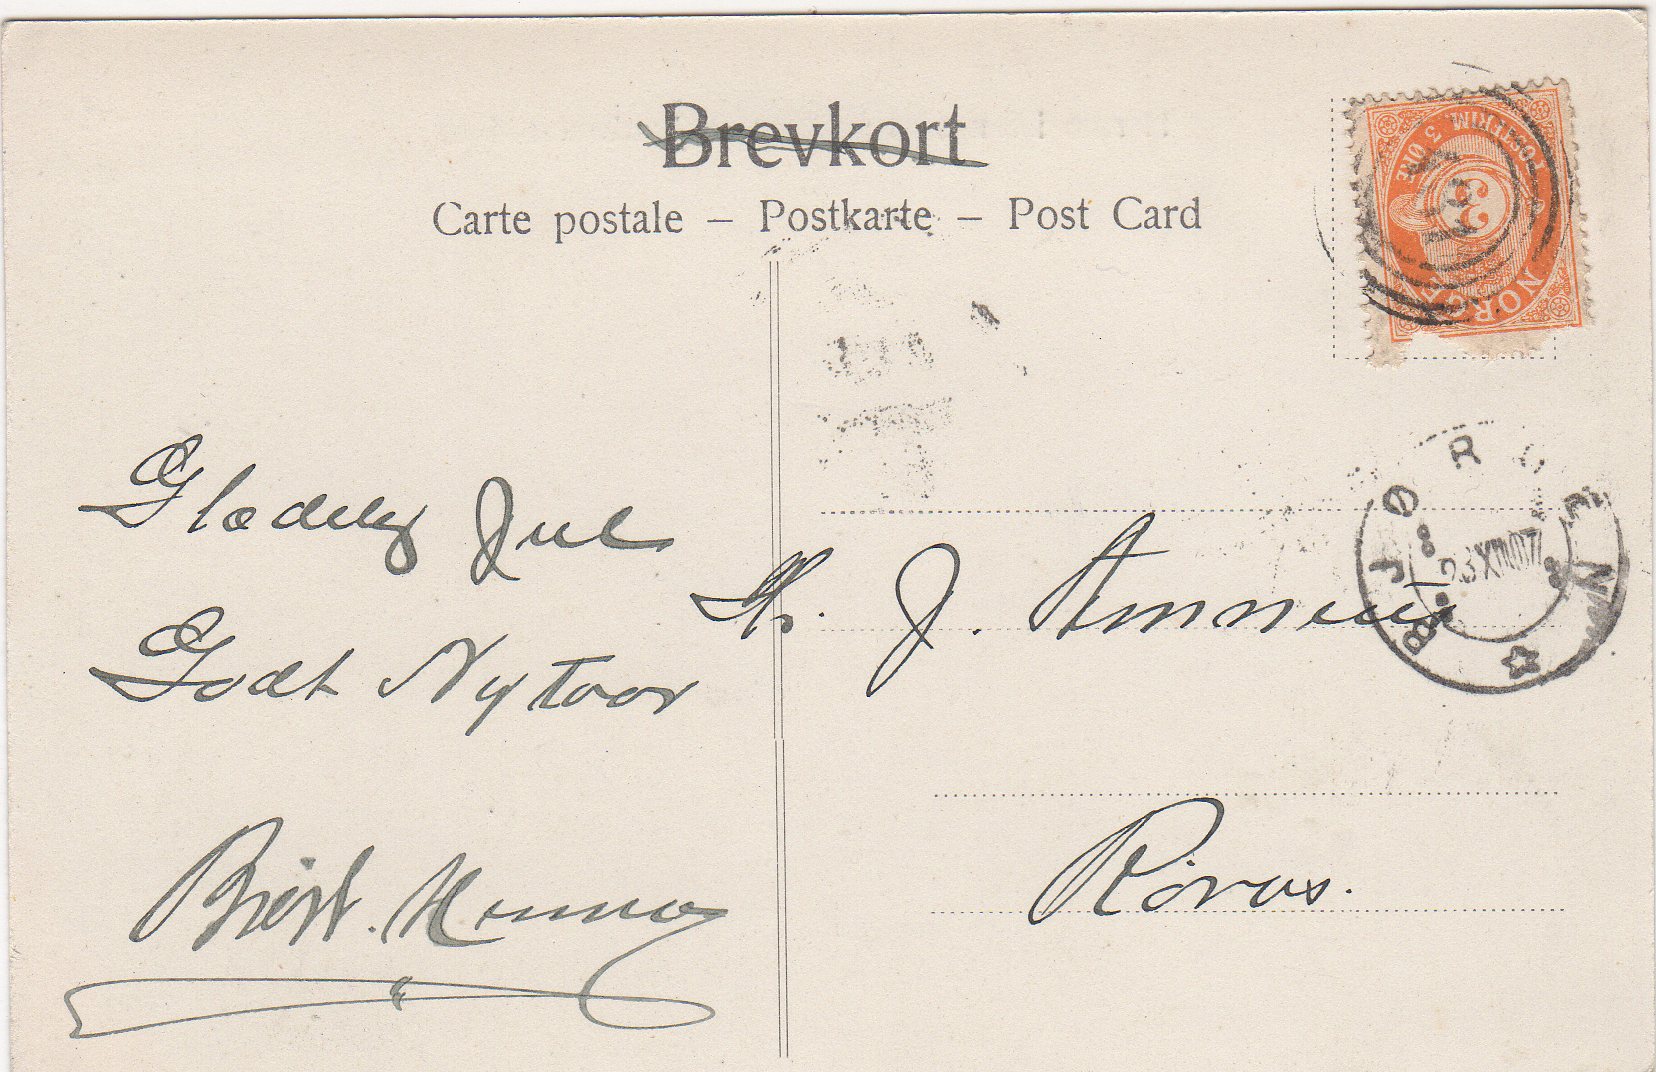 Brevkort
Carte postale – Postkarte – Post Card
POSTFRIM 3 ØRE
3
NORGE
165
BJØRGEN
23 XII 07
Glædelig Jul
Godt Nytaar
Hr. J. Amneus
Röros.